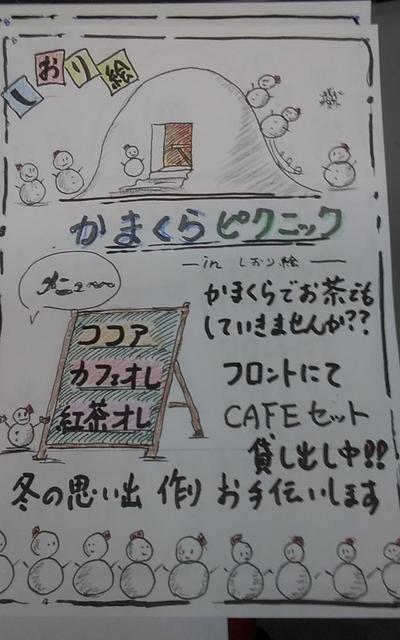 しおり絵
かまくらピクニック
in しおり絵
メニュー
かまくらでお茶でも
していきませんか??
ココア
カフェオレ
紅茶オレ
フロントにて
CAFEセット
貸し出し中!!
冬の思い出 作り お手伝いします